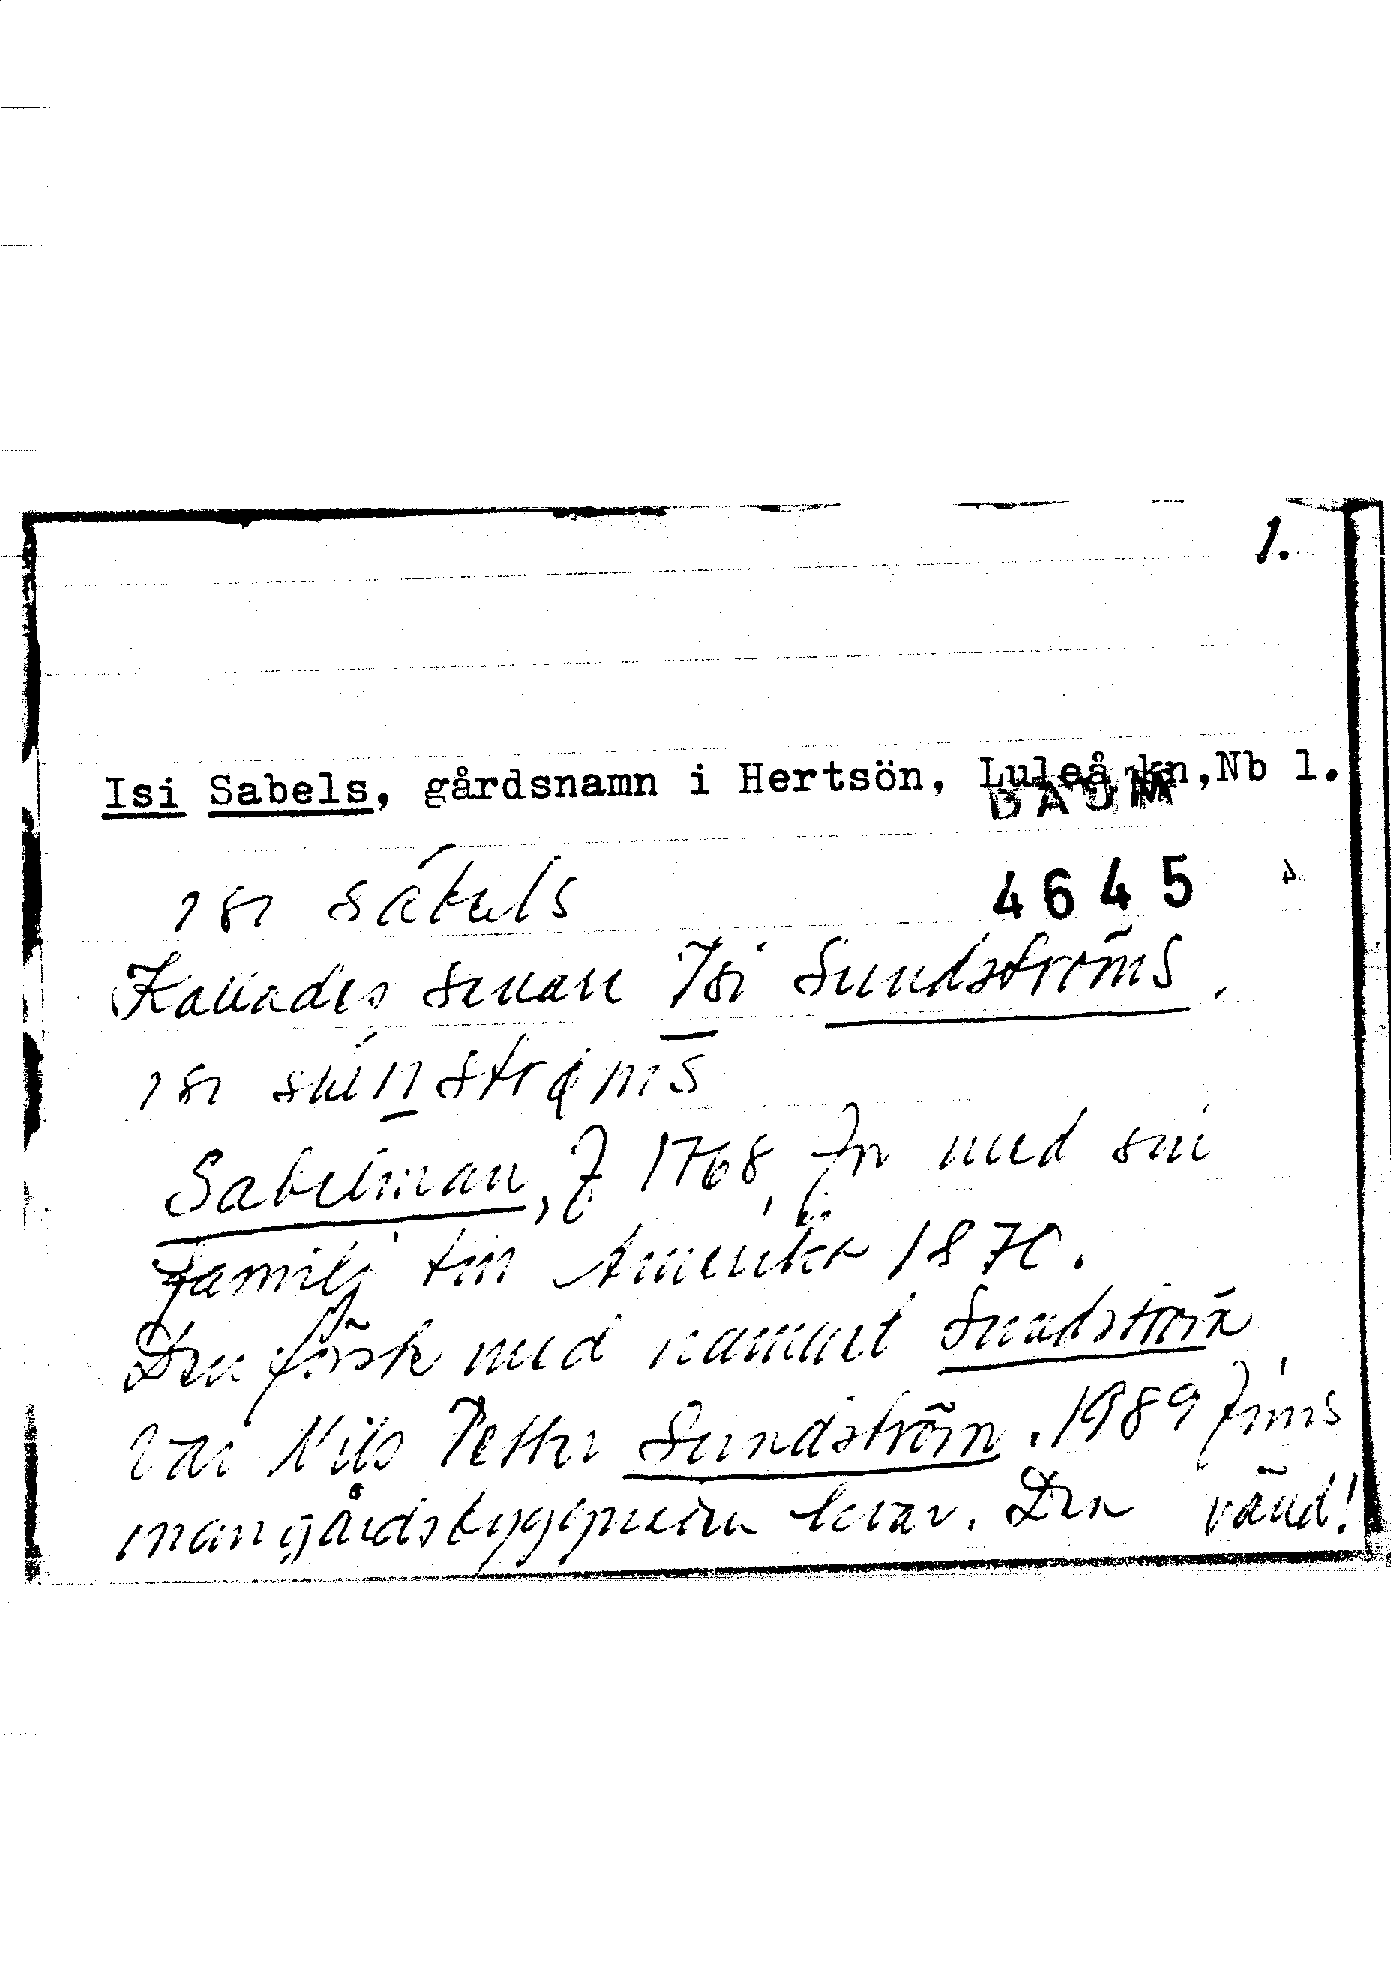 1.
Isi Sabels, gårdsnamn i Hertsön, Luleå kn,Nb l.
DAUM
ısı sábels
4645
Kallades senare Isi Sundströms.
ısı
Sabelman, f 1768, for med sin
familj till Amerika 1870.
Den förste med namnet Sundström
var Nils Petter Sundström. 1989 finns
mangårdsbyggnaden kvar. Den vänd!